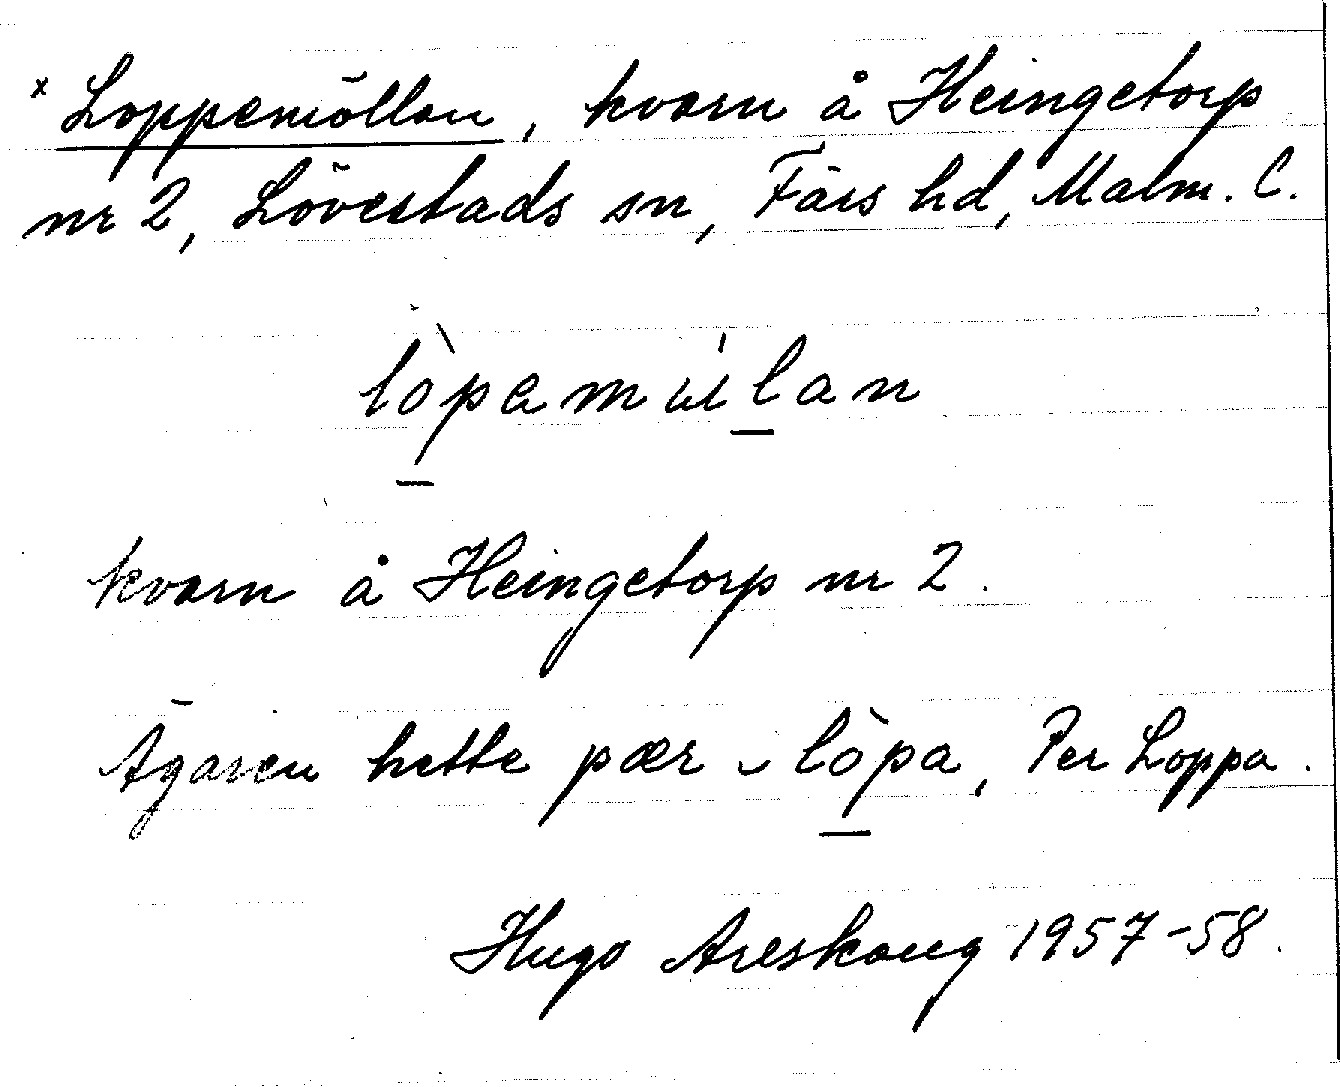 x Loppemöllan, kvarn å Heingetorp
nr 2, Lövestads sn, Färs hd, Malm. C.
lòpamúlan
kvarn å Heingetorp nr 2.
Ägaren hette pær lòpa, Per Loppa.
Hugo Areskoug 1957-58.